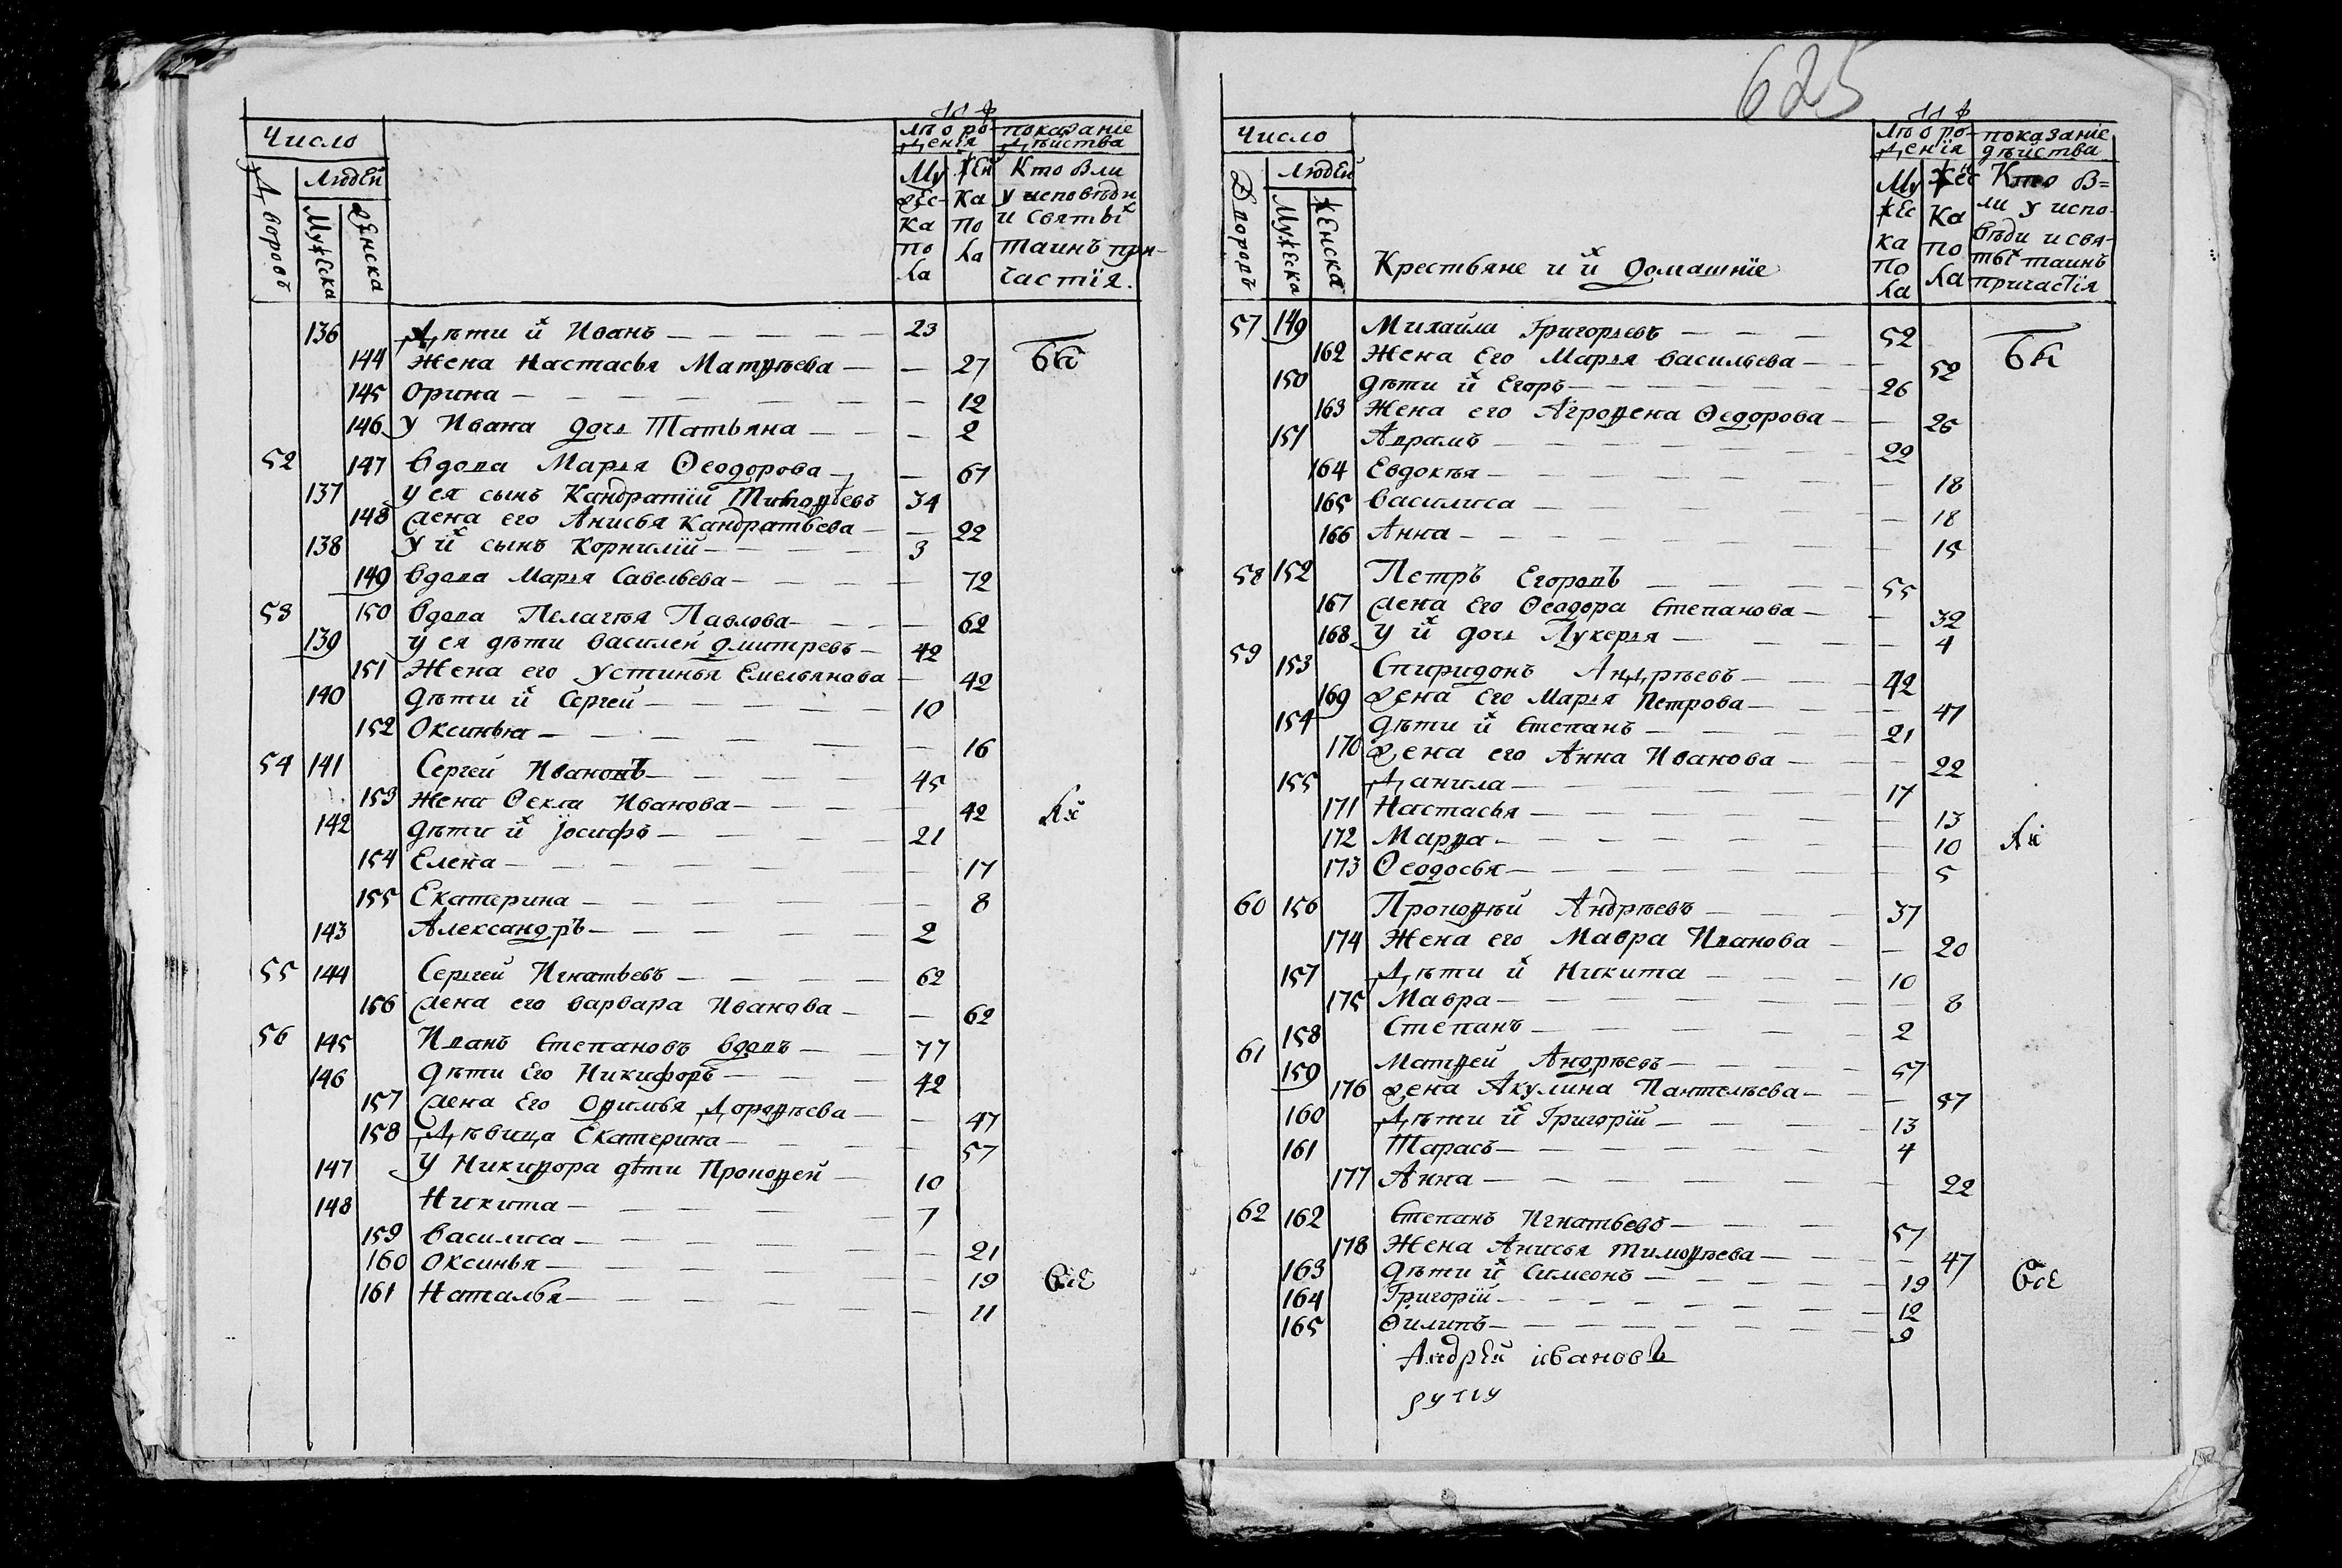 Число
Людей
Дворовъ
Мужеска
Женска
лѣ о ро-
денія
Му
жес-
ка
по
ла
жен
ка
по
ла
показаніе
дѣиства
Кто были
у исповѣди
и святыхъ
таинъ при-
частїя.
136 Дѣти их Иванъ 23
144 Жена Настасья Матѳѣева 27 бы
145 Орина 12
146 У Ивана дочь Татьяна 2
52 147 Вдова Марья Ѳеодорова 61
137 у ея сынъ Кандратїи Тимоѳѣевъ 34
148 жена его Анисья Кандратьева 22
138 У их сынъ Корнилїи 3
149 Вдова Марья Савельева 72
53 150 Вдова Пелагѣя Павлова 62
139 у ея дѣти Василей Дмитревъ 42
151 Жена его Устинья Емельянова 42
140 дѣти их Сергей 10
152 Оксинья 16
54 141 Сергей Ивановъ 45
153 Жена Ѳекла Иванова 42
142 дѣти их Їосифъ 21
154 Елена 17
155 Екатерина 8
143 Александръ 2
55 144 Сергей Игнатьевъ 62
156 жена его Варвара Иванова 62
56 145 Иванъ Степановъ вдовъ 77
146 дѣти Его Никифоръ 42
157 жена Его Ѳѳимья Дороѳѣева 47
158 Дѣвица Екатерина 57
147 У Никиѳора дѣти Прокоѳей 10
148 Никита 7
159 Василиса 21
160 Оксинья 19 всѣ
161 Наталья 11
625
Число
Людей
Дворовъ
Мужеска
Женска
Крестьяне и их домашнїе
лѣ о ро-
денїя
Му
жес
ка
по
ла
жес
ка
по
ла
показанїе
дѣйства
Кто бы=
ли у испо-
вѣди и свя-
тых таинъ
причастїя
57 149 Михайла Григорьевъ 52
162 Жена Его Марья Васильева 52 бы
150 дѣти их Егоръ 26
163 Жена его Агроѳена Ѳедорова 26
151 Аврамъ 22
164 Евдокѣя 18
165 Василиса 18
166 Анна 15
58 152 Петръ Егоровъ 55
167 жена Его Ѳеодора Степанова 32
168 У их дочь Лукерья 4
59 153 Спиридонъ Андрѣевъ 42
169 жена Его Марья Петрова 41
154 дѣти их Степанъ 21
170 жена его Анна Иванова 22
155 Данила 17
171 Настасья 13
172 Марѳа 10
173 Ѳеодосья 5
60 156 Прокоѳѣй Андрѣевъ 37
174 Жена его Мавра Иванова 20
157 Дѣти их Никита 10
175 Мавра 8
158 Степанъ 2
61 159 Матѳей Андрѣевъ 57
176 жена Акулина Пантелѣева 57
160 Дѣти их Григорїй 13
161 Тарасъ 4
177 Анна 22
62 162 Степанъ Игнатьевъ 57
178 Жена Анисья Тимоѳѣева 47
163 дѣти их Симеонъ 19 всѣ
164 Григорїй 12
165 Ѳилипъ 9
Андрей ивановъ
руку